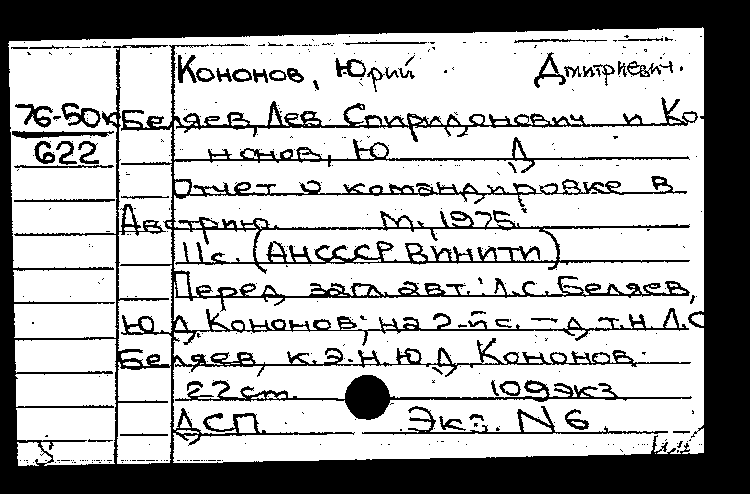 Кононов, Юрий Дмитриевич.
76-50к Беляев, Лев Спиридонович и Ко-
622 нонов, Ю Д
Отчет о командировке в
Австрию. М., 1975.
11с. (АНСССР. ВИНИТИ)
Перед загл. авт.: Л.С. Беляев,
Ю.Д. Кононов; на 2-й с. — д.т.н Л.С
Беляев, к.э.н. Ю.Д. Кононов.
22 см. 109 экз
ДСП. Экз. N 6.